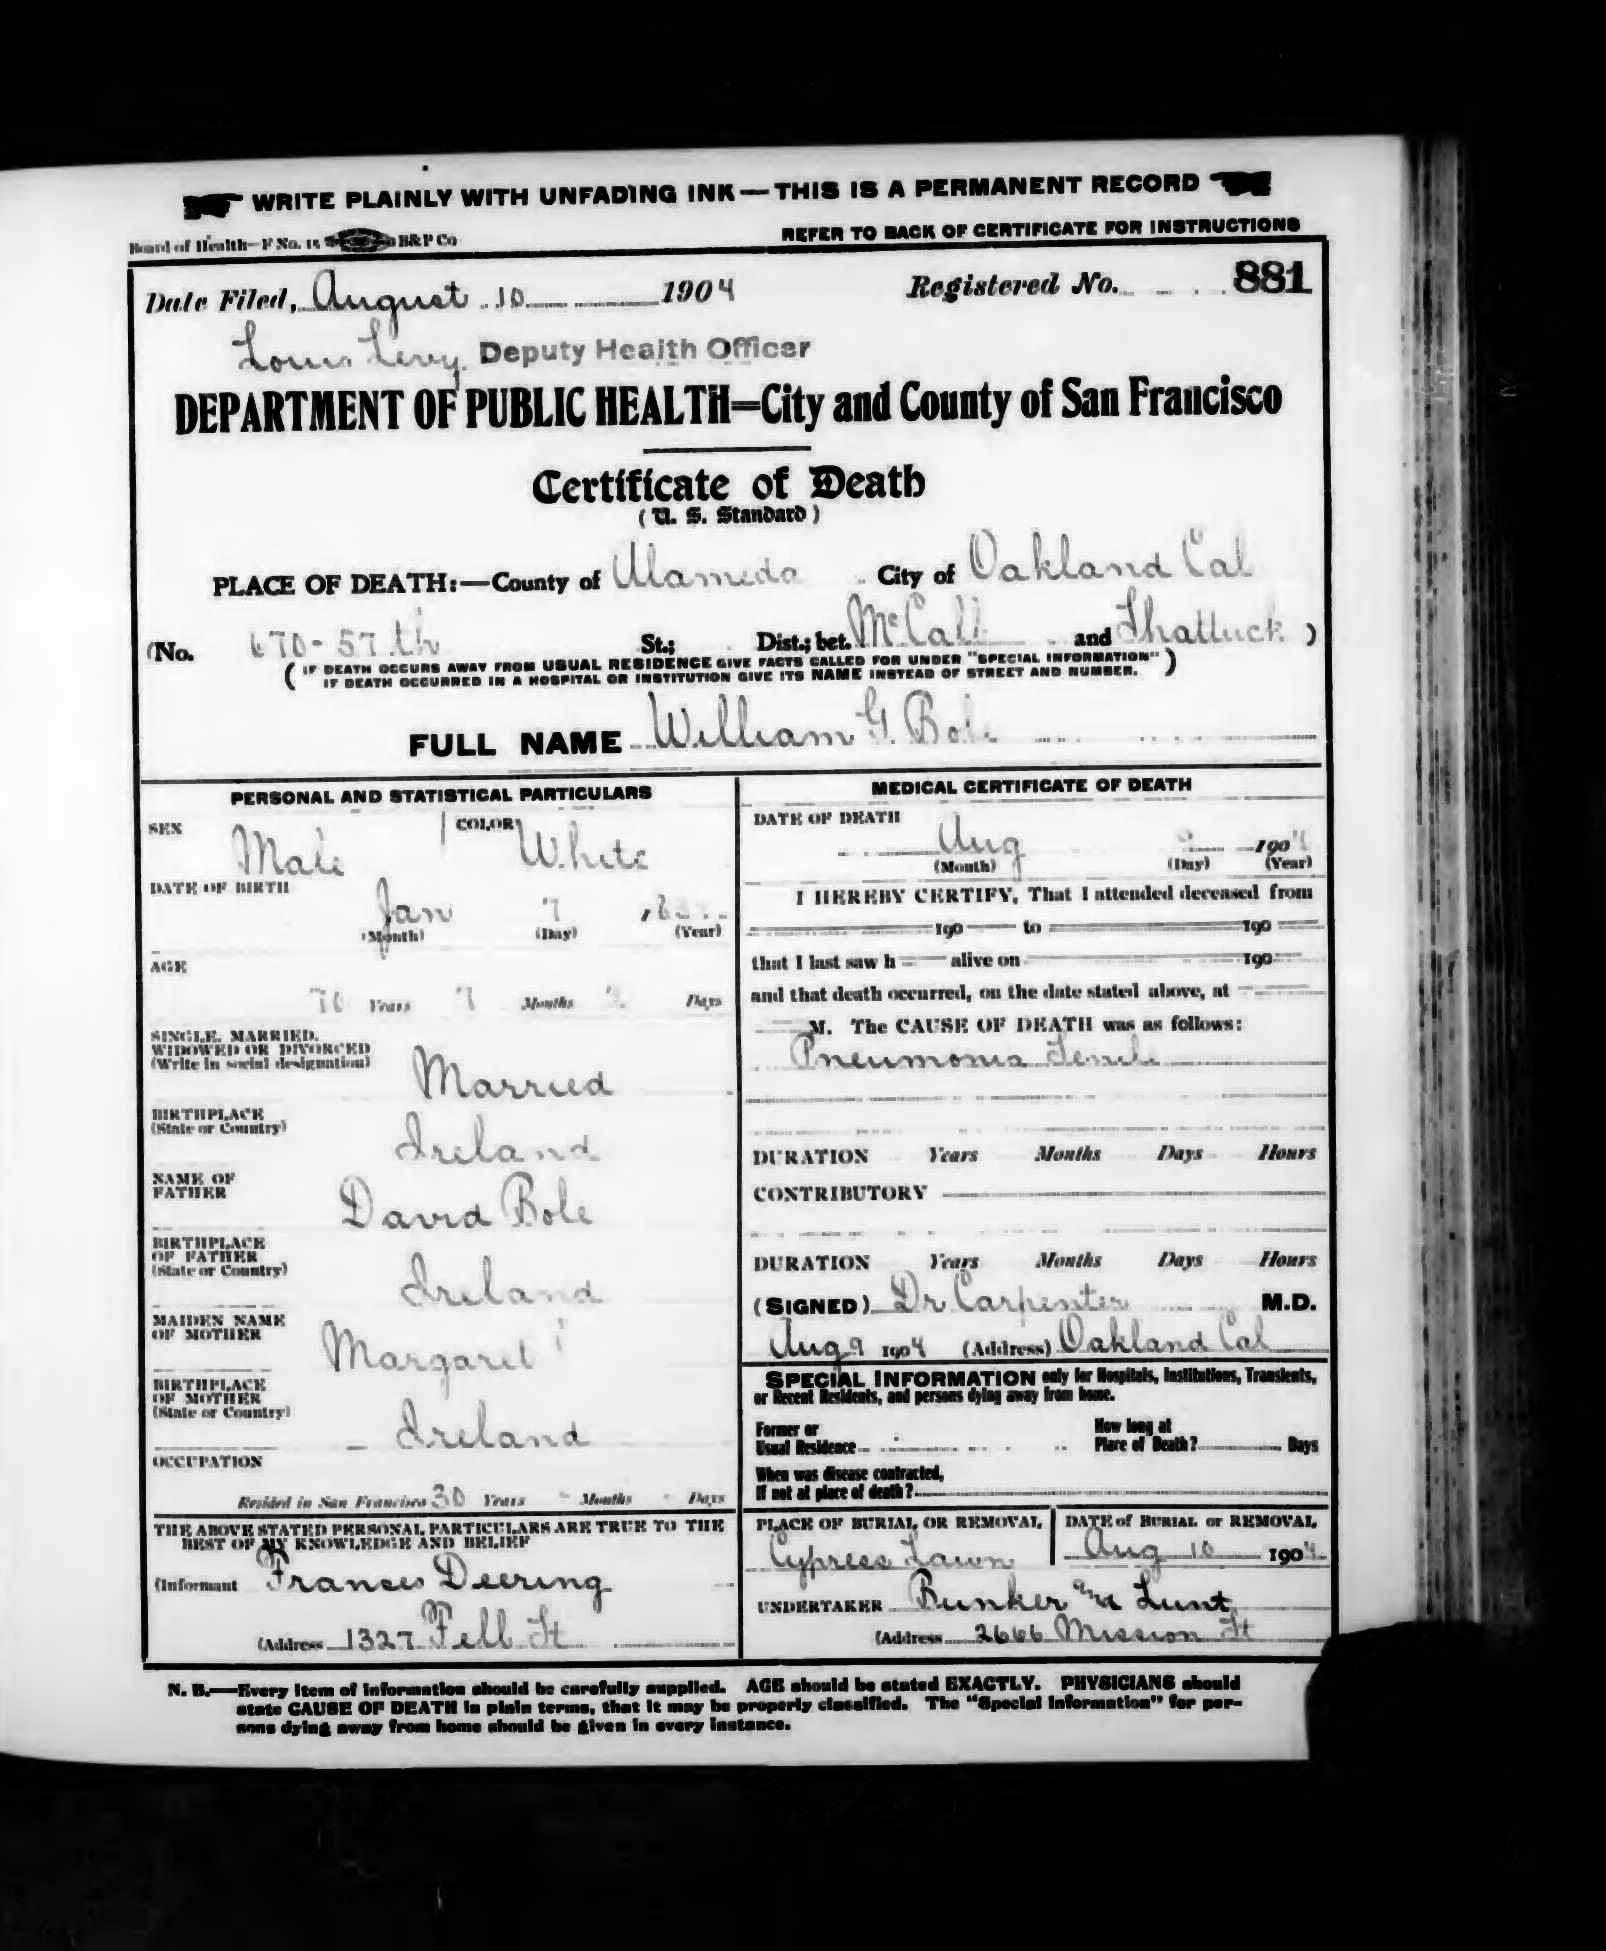 WRITE PLAINLY WITH UNFADING INK — THIS IS A PERMANENT RECORD
Board of Health—F No. 15 B&P Co
REFER TO BACK OF CERTIFICATE FOR INSTRUCTIONS
Date Filed, August 10 1904 Registered No. 881
Louis Levy Deputy Health Officer
DEPARTMENT OF PUBLIC HEALTH=City and County of San Francisco
Certificate of Death
(U. S. Standard)
PLACE OF DEATH:—County of Alameda City of Oakland Cal
(No. 670-57th St.; Dist.; bet. McCall and Shattuck )
( IF DEATH OCCURS AWAY FROM USUAL RESIDENCE GIVE FACTS CALLED FOR UNDER "SPECIAL INFORMATION"
IF DEATH OCCURRED IN A HOSPITAL OR INSTITUTION GIVE ITS NAME INSTEAD OF STREET AND NUMBER. )
FULL NAME William G. Bole
PERSONAL AND STATISTICAL PARTICULARS
SEX Male COLOR White
DATE OF BIRTH
Jan 7
(Month) (Day) (Year)
AGE
70 Years 7 Months Days
SINGLE, MARRIED,
WIDOWED OR DIVORCED
(Write in social designation)
Married
BIRTHPLACE
(State or Country)
Ireland
NAME OF
FATHER
David Bole
BIRTHPLACE
OF FATHER
(State or Country)
Ireland
MAIDEN NAME
OF MOTHER
Margaret
BIRTHPLACE
OF MOTHER
(State or Country)
Ireland
OCCUPATION
Resided in San Francisco 30 Years - Months - Days
THE ABOVE STATED PERSONAL PARTICULARS ARE TRUE TO THE
BEST OF MY KNOWLEDGE AND BELIEF
(Informant Frances Deering
(Address 1327 Fell St
MEDICAL CERTIFICATE OF DEATH
DATE OF DEATH
Aug 9 1904
(Month) (Day) (Year)
I HEREBY CERTIFY, That I attended deceased from
190 to 190
that I last saw h alive on 190
and that death occurred, on the date stated above, at
M. The CAUSE OF DEATH was as follows:
Pneumonia Senile
DURATION Years Months Days Hours
CONTRIBUTORY
DURATION Years Months Days Hours
(SIGNED) Dr Carpenter M.D.
Aug 9 1904 (Address) Oakland Cal
SPECIAL INFORMATION only for Hospitals, Institutions, Transients,
or Recent Residents, and persons dying away from home.
Former or
Usual Residence
How long at
Place of Death? Days
When was disease contracted,
If not at place of death?
PLACE OF BURIAL OR REMOVAL
Cypress Lawn
DATE of BURIAL or REMOVAL
Aug 10 1904
UNDERTAKER Bunker and Lunt
(Address 2666 Mission St
N. B.—Every item of information should be carefully supplied. AGE should be stated EXACTLY. PHYSICIANS should
state CAUSE OF DEATH in plain terms, that it may be properly classified. The "Special Information" for per-
sons dying away from home should be given in every instance.